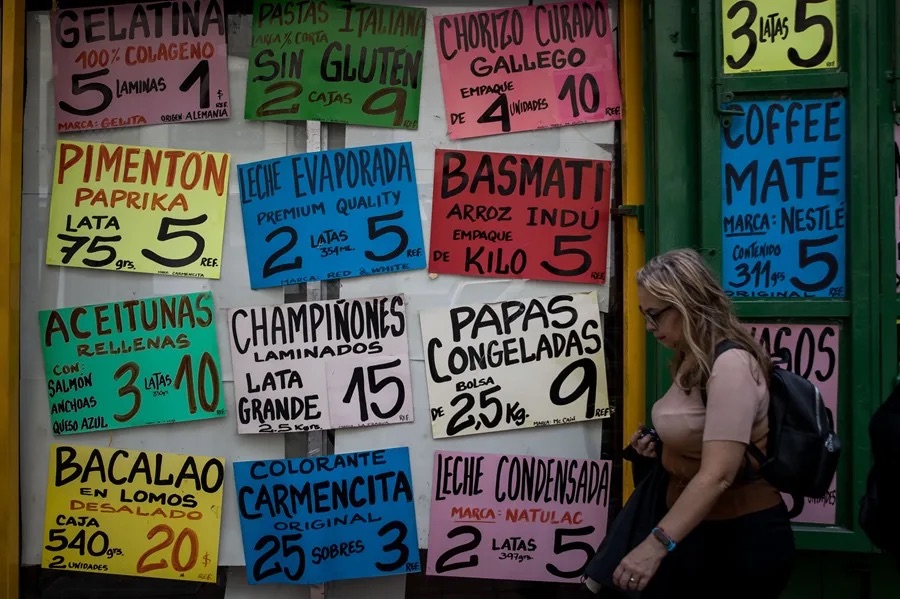 GELATINA
100% COLAGENO
5 LAMINAS 1 $ REF.
MARCA: GELITA ORIGEN ALEMANIA
PASTAS ITALIANA
MARCA % CORTA
SIN GLUTEN
2 CAJAS 9 REF
CHORIZO CURADO
GALLEGO
EMPAQUE
DE 4 UNIDADES 10 REF
3 LATAS 5
PIMENTÓN
PAPRIKA
LATA
75 grs. 5 REF.
MARCA: CARMENCITA
LECHE EVAPORADA
PREMIUM QUALITY
2 LATAS 354ML 5 REF
MARCA: RED & WHITE
BASMATI
ARROZ INDÚ
EMPAQUE
DE KILO 5 REF
COFFEE
MATE
MARCA: NESTLÉ
CONTENIDO
311 grs 5 REF
ORIGINAL
ACEITUNAS
RELLENAS
CON:
SALMÓN
ANCHOAS
QUESO AZUL 3 LATAS 10 REF
CHAMPIÑONES
LAMINADOS
LATA
GRANDE 15 REF
2.5 Kgrs.
PAPAS
CONGELADAS
BOLSA
DE 2,5 Kg. 9 REF
MARCA: Mc CAIN
BACALAO
EN LOMOS
DESALADO
CAJA
540 grs. 20 $
2 UNIDADES REF
COLORANTE
CARMENCITA
ORIGINAL
25 SOBRES 3 REF
LECHE CONDENSADA
MARCA: NATULAC
2 LATAS 5 REF
397grs.